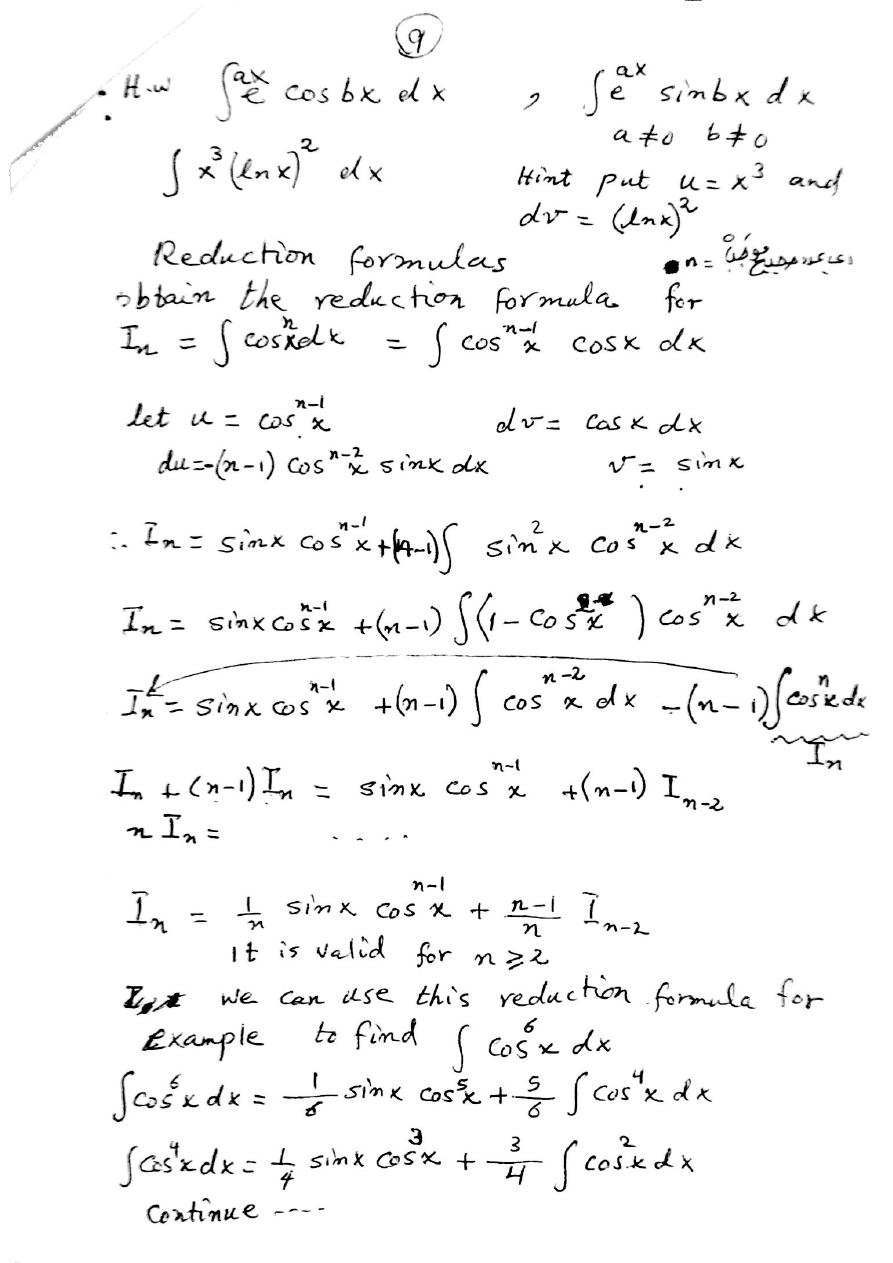 9
H.w ∫ e^{ax} cos bx dx , ∫ e^{ax} sin bx dx
a ≠ 0 b ≠ 0
∫ x³ (ln x)² dx Hint put u = x³ and
dv = (ln x)²
Reduction formulas n =
obtain the reduction formula for
I_n = ∫ cos^n x dx = ∫ cos^{n-1} x cos x dx
let u = cos^{n-1} x dv = cos x dx
du = -(n-1) cos^{n-2} x sin x dx v = sin x
∴ I_n = sin x cos^{n-1} x + (n-1) ∫ sin² x cos^{n-2} x dx
I_n = sin x cos^{n-1} x + (n-1) ∫ (1 - cos² x) cos^{n-2} x dx
I_n = sin x cos^{n-1} x + (n-1) ∫ cos^{n-2} x dx - (n-1) ∫ cos^n x dx
I_n
I_n + (n-1) I_n = sin x cos^{n-1} x + (n-1) I_{n-2}
n I_n = ....
I_n = 1/n sin x cos^{n-1} x + (n-1)/n I_{n-2}
it is valid for n ⩾ 2
we can use this reduction formula for
Example to find ∫ cos⁶ x dx
∫ cos⁶ x dx = 1/6 sin x cos⁵ x + 5/6 ∫ cos⁴ x dx
∫ cos⁴ x dx = 1/4 sin x cos³ x + 3/4 ∫ cos² x dx
Continue ----